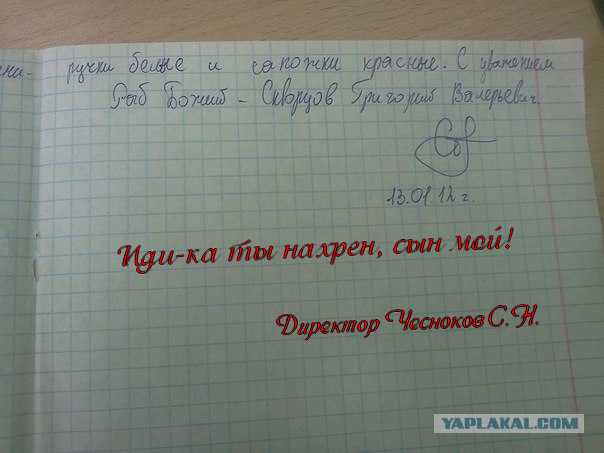 ручки белые и сапожки красные. С уважением
Раб Божий - Скворцов Григорий Валерьевич
13.01.12 г.
Иди-ка ты нахрен, сын мой!
Директор Чесноков С.Н.
YAPLAKAL.COM